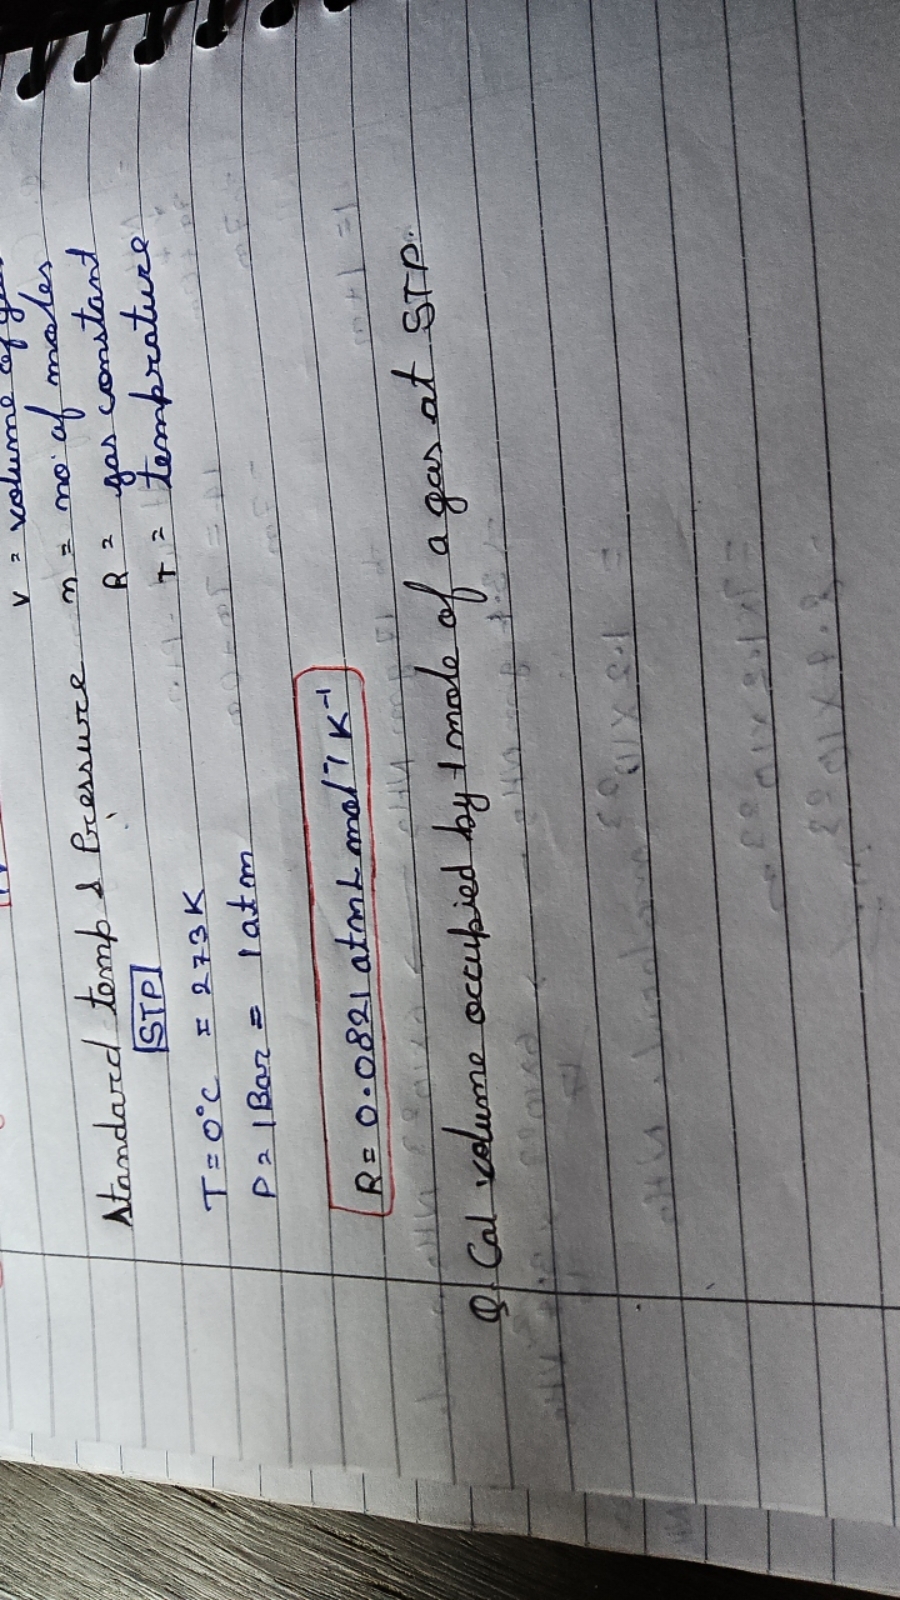 V = volume of
n = no. of moles
R = gas constant
T = temprature
Standard temp & Pressure
STP
T = 0°C = 273K
P = 1Bar = 1atm
R = 0.0821 atm L mol⁻¹ K⁻¹
Q. Cal volume occupied by 1 mole of a gas at STP.